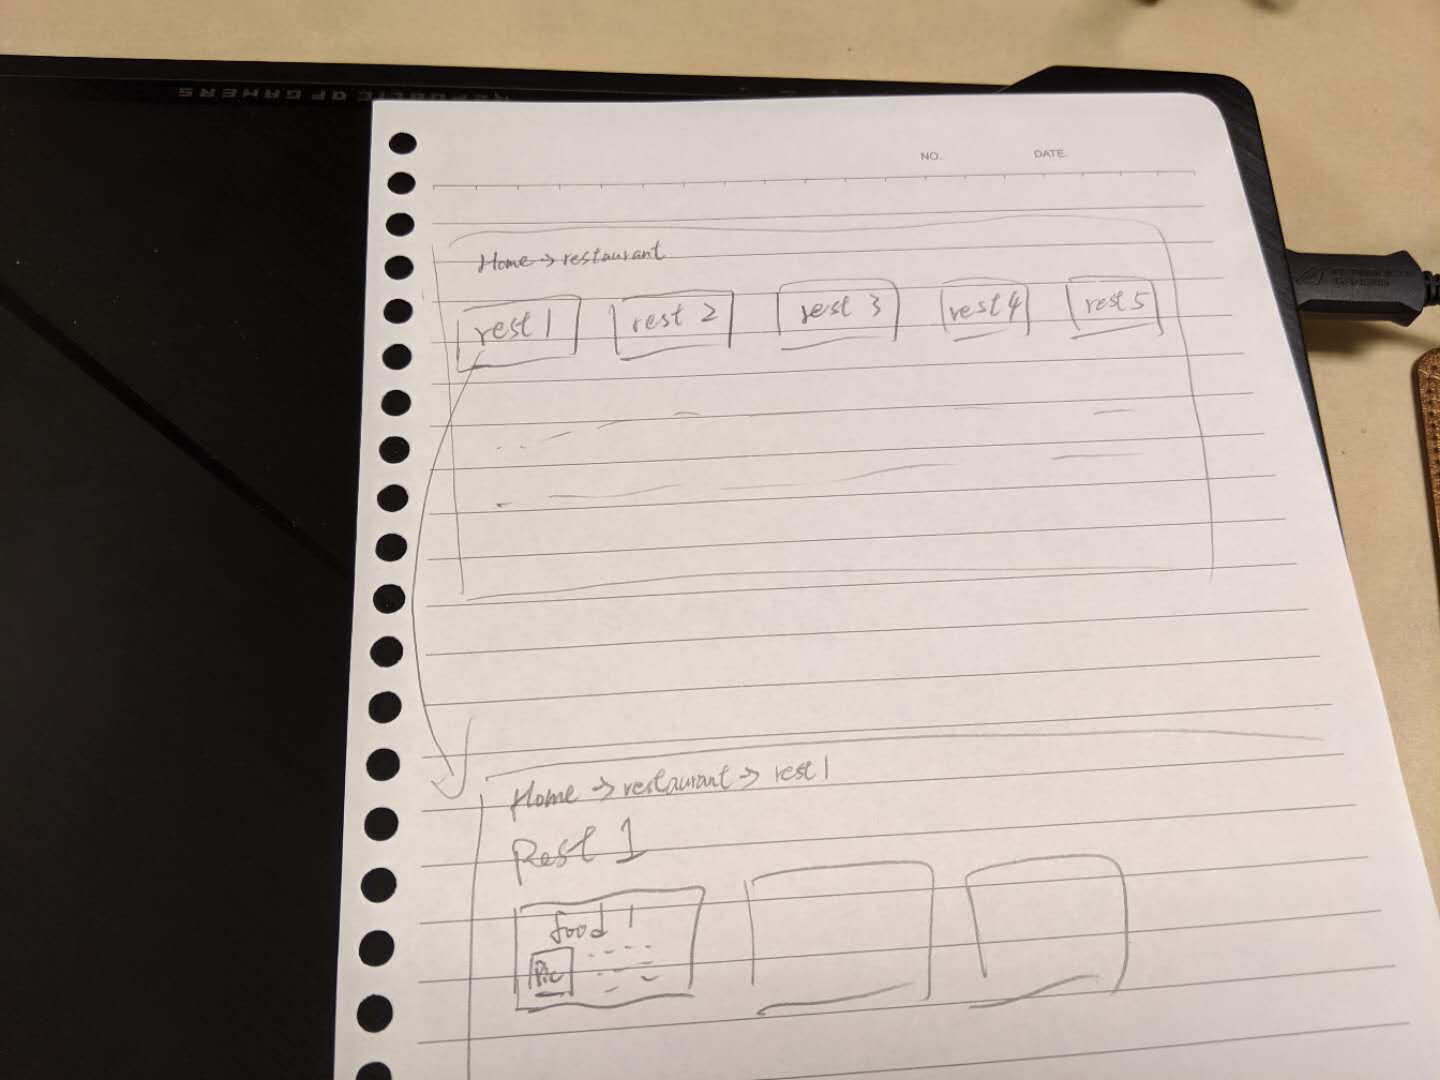 REPUBLIC OF GAMERS
NO. DATE.
Home → restaurant
rest 1 rest 2 rest 3 rest 4 rest 5
Home → restaurant → rest 1
Rest 1
food 1
Pic